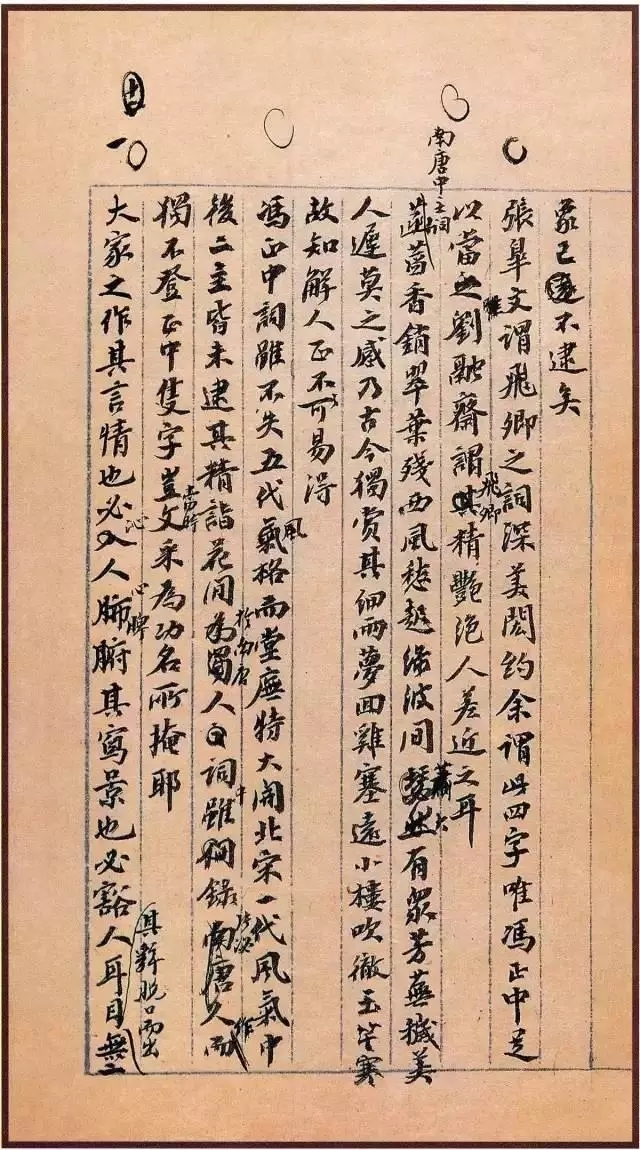 家已不逮矣
張皋文謂飛卿之詞深美閎約余謂此四字唯馮正中足
以當之劉融齋謂飛卿精艷絕人差近之耳
南唐中主詞
菡萏香銷翠葉殘西風愁起綠波間大有眾芳蕪穢美
人遲莫之感乃古今獨賞其細雨夢回雞塞遠小樓吹徹玉笙寒
故知解人正不可易得
馮正中詞雖不失五代氣格而堂廡特大開北宋一代風氣中
後二主皆未逮其精詣花間於南唐人詞中雖錄張泌作而
獨不登正中隻字豈當時文采為功名所掩耶
大家之作其言情也必沁人心脾其寫景也必豁人耳目其辭脫口而出無